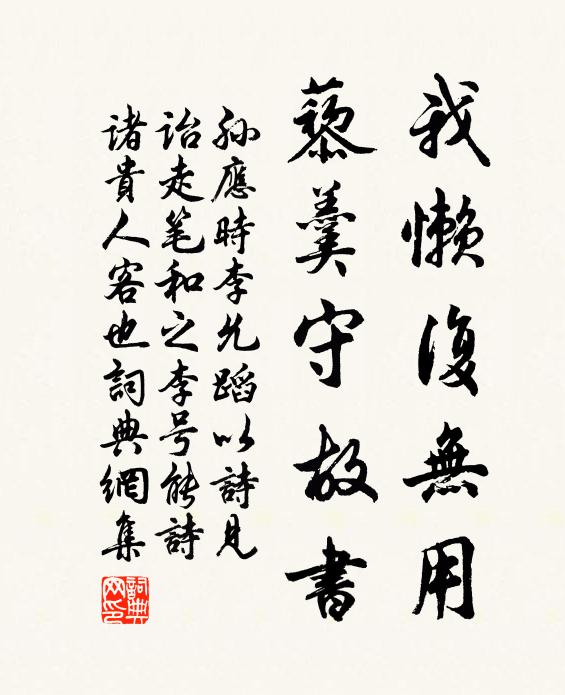 我懒復無用
藜羹守故書
孙應時李允蹈以詩見
诒走笔和之李号能詩
诸貴人客也詞典網集
詞典网印